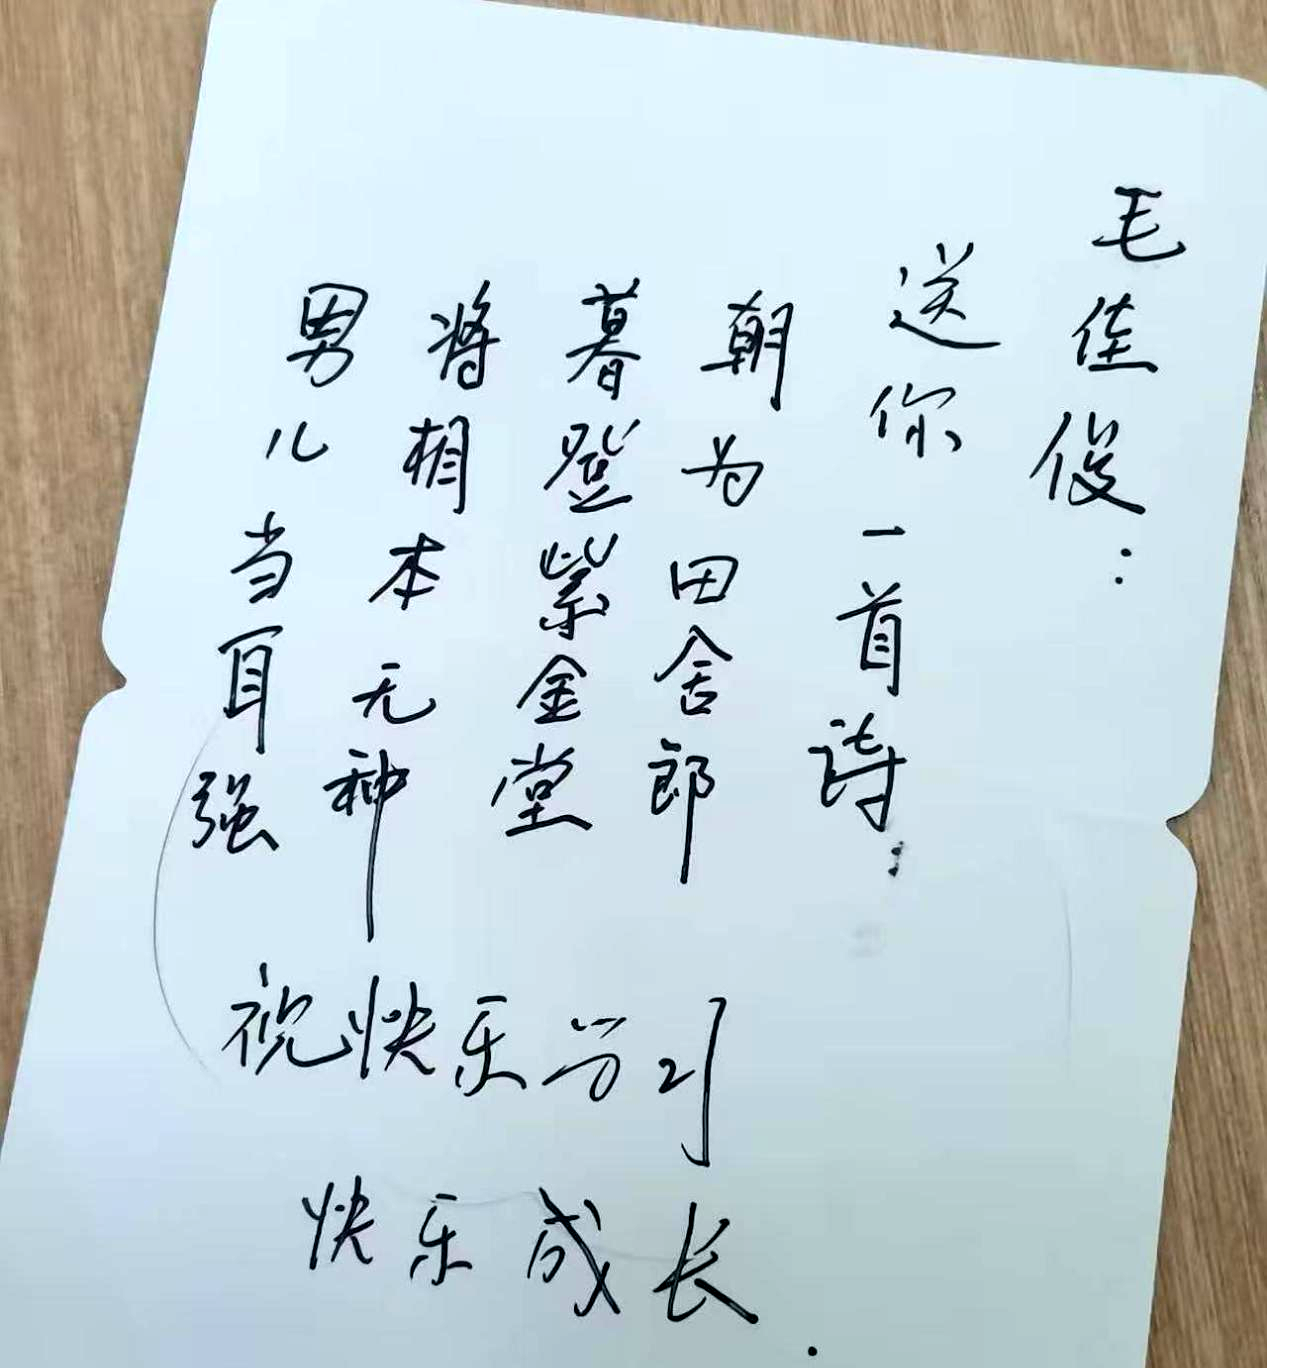 毛佳俊：
送你一首诗：
朝为田舍郎
暮登紫金堂
将相本无种
男儿当耳强
祝快乐学习
快乐成长.